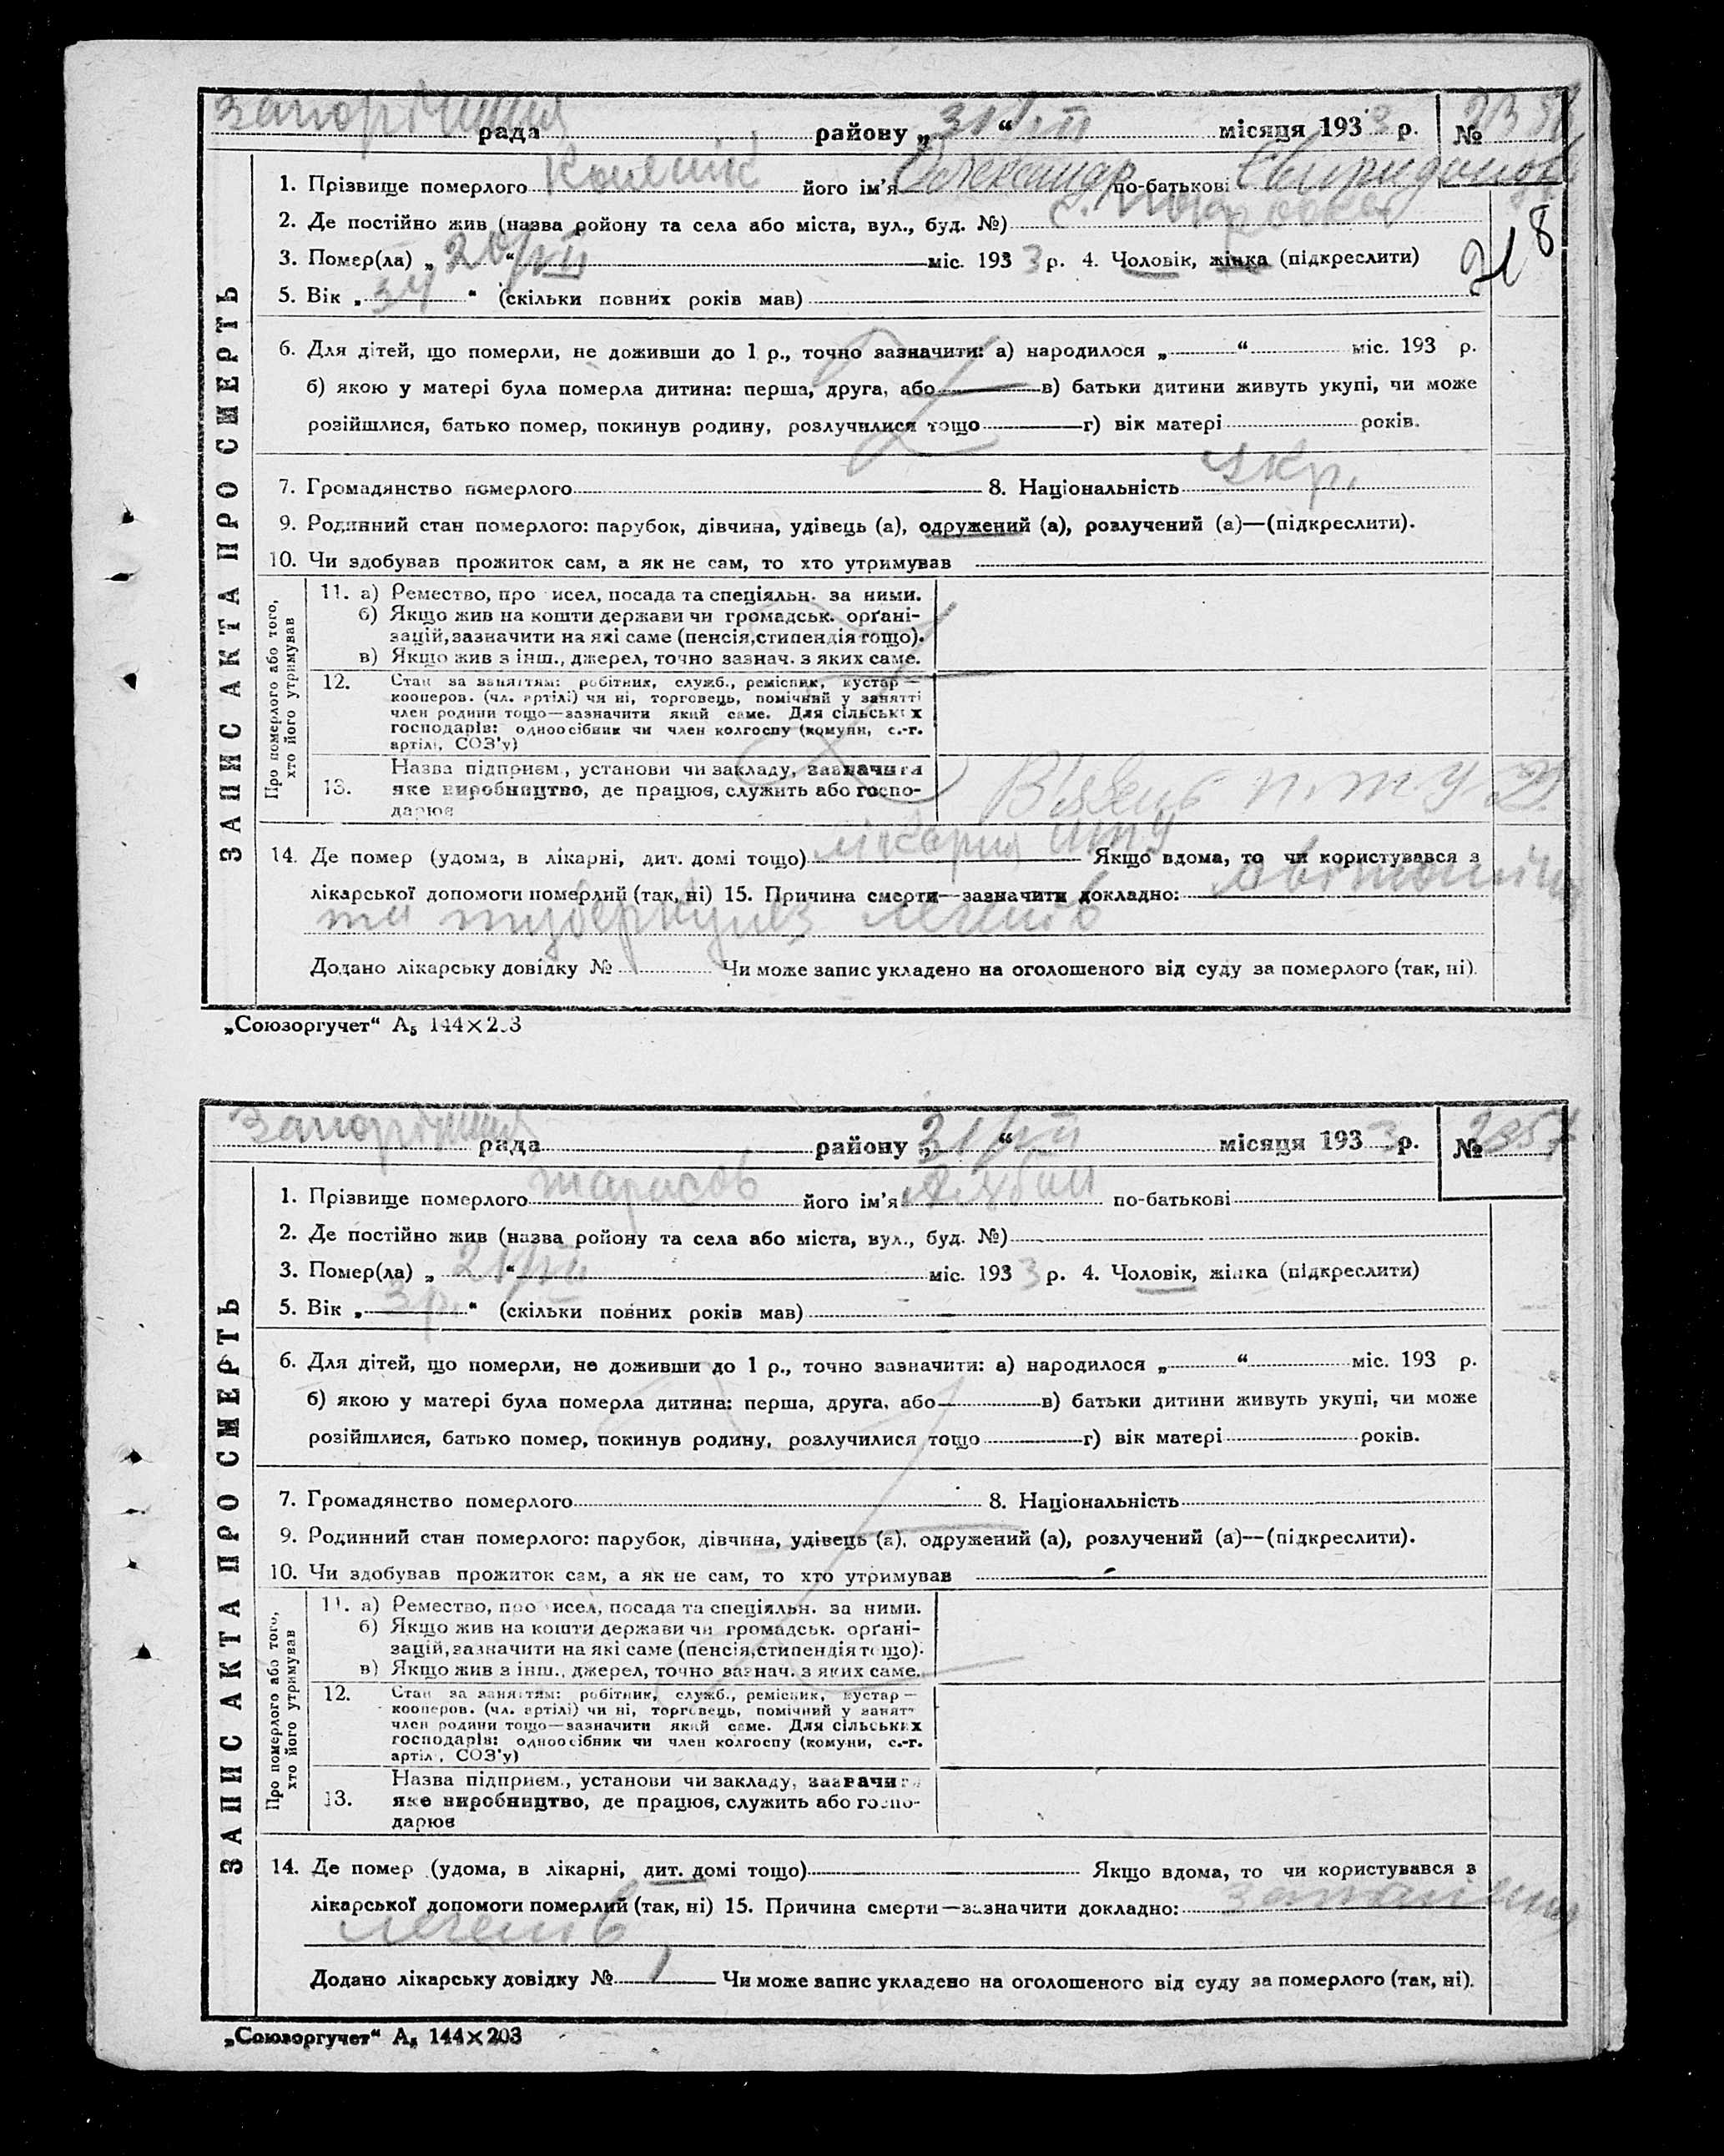 ЗАПИС АКТА ПРО СМЕРТЬ
рада району „31/VII“ місяця 1933 р. №
1. Прізвище померлого його ім'я Олександр по-батькові
2. Де постійно жив (назва ройону та села або міста, вул., буд. №) с.
3. Помер(ла) „20/VII“ міс. 1933 р. 4. Чоловік, жінка (підкреслити)
218
5. Вік „34“ (скільки повних років мав)
6. Для дітей, що померли, не доживши до 1 р., точно зазначити: а) народилося „ “ міс. 193 р.
б) якою у матері була померла дитина: перша, друга, або в) батьки дитини живуть укупі, чи може
розійшлися, батько помер, покинув родину, розлучилися тощо г) вік матері років.
7. Громадянство померлого 8. Національність укр.
9. Родинний стан померлого: парубок, дівчина, удівець (а), одружений (а), розлучений (а)—(підкреслити).
10. Чи здобував прожиток сам, а як не сам, то хто утримував
Про померлого або того, хто його утримував
11. а) Ремество, про исел, посада та спеціяльн. за ними.
б) Якщо жив на кошти держави чи громадськ. орґані-
зацій, зазначити на які саме (пенсія, стипендія тощо).
в) Якщо жив з інш., джерел, точно зазнач. з яких саме.
12. Стан за заняттям: робітник, служб., ремісник, кустар—
кооперов. (чл. артілі) чи ні, торговець, помічний у занятті
член родини тощо—зазначити який саме. Для сільських
господарів: одноосібник чи член колгоспу (комуни, с.-г.
артілі, СОЗ'у)
Назва підприєм., установи чи закладу, зазначити
13. яке виробництво, де працює, служить або госпо-
дарює
14. Де помер (удома, в лікарні, дит. домі тощо) лікарня Якщо вдома, то чи користувався з
лікарської допомоги померлий (так, ні) 15. Причина смерти—зазначити докладно: авітоміноз
та туберкульоз легенів
Додано лікарську довідку № Чи може запис укладено на оголошеного від суду за померлого (так, ні).
„Союзоргучет“ А₅ 144×203
ЗАПИС АКТА ПРО СМЕРТЬ
рада району „31/VII“ місяця 1933 р. № 2357
1. Прізвище померлого Тарасов його ім'я по-батькові
2. Де постійно жив (назва ройону та села або міста, вул., буд. №)
3. Помер(ла) „21/VII“ міс. 1933 р. 4. Чоловік, жінка (підкреслити)
5. Вік „3 р.“ (скільки повних років мав)
6. Для дітей, що померли, не доживши до 1 р., точно зазначити: а) народилося „ “ міс. 193 р.
б) якою у матері була померла дитина: перша, друга, або в) батьки дитини живуть укупі, чи може
розійшлися, батько помер, покинув родину, розлучилися тощо г) вік матері років.
7. Громадянство померлого 8. Національність
9. Родинний стан померлого: парубок, дівчина, удівець (а), одружений (а), розлучений (а)—(підкреслити).
10. Чи здобував прожиток сам, а як не сам, то хто утримував
Про померлого або того, хто його утримував
11. а) Ремество, про исел, посада та спеціяльн. за ними.
б) Якщо жив на кошти держави чи громадськ. орґані-
зацій, зазначити на які саме (пенсія, стипендія тощо).
в) Якщо жив з інш., джерел, точно зазнач. з яких саме.
12. Стан за заняттям: робітник, служб., ремісник, кустар—
кооперов. (чл. артілі) чи ні, торговець, помічний у занятт
член родини тощо—зазначити який саме. Для сільських
господарів: одноосібник чи член колгоспу (комуни, с.-г.
артілі, СОЗ'у)
Назва підприєм., установи чи закладу, зазначити
13. яке виробництво, де працює, служить або госпо-
дарює
14. Де помер (удома, в лікарні, дит. домі тощо) Якщо вдома, то чи користувався з
лікарської допомоги померлий (так, ні) 15. Причина смерти—зазначити докладно: запалення
легенів
Додано лікарську довідку № Чи може запис укладено на оголошеного від суду за померлого (так, ні).
„Союзоргучет“ А₅ 144×203